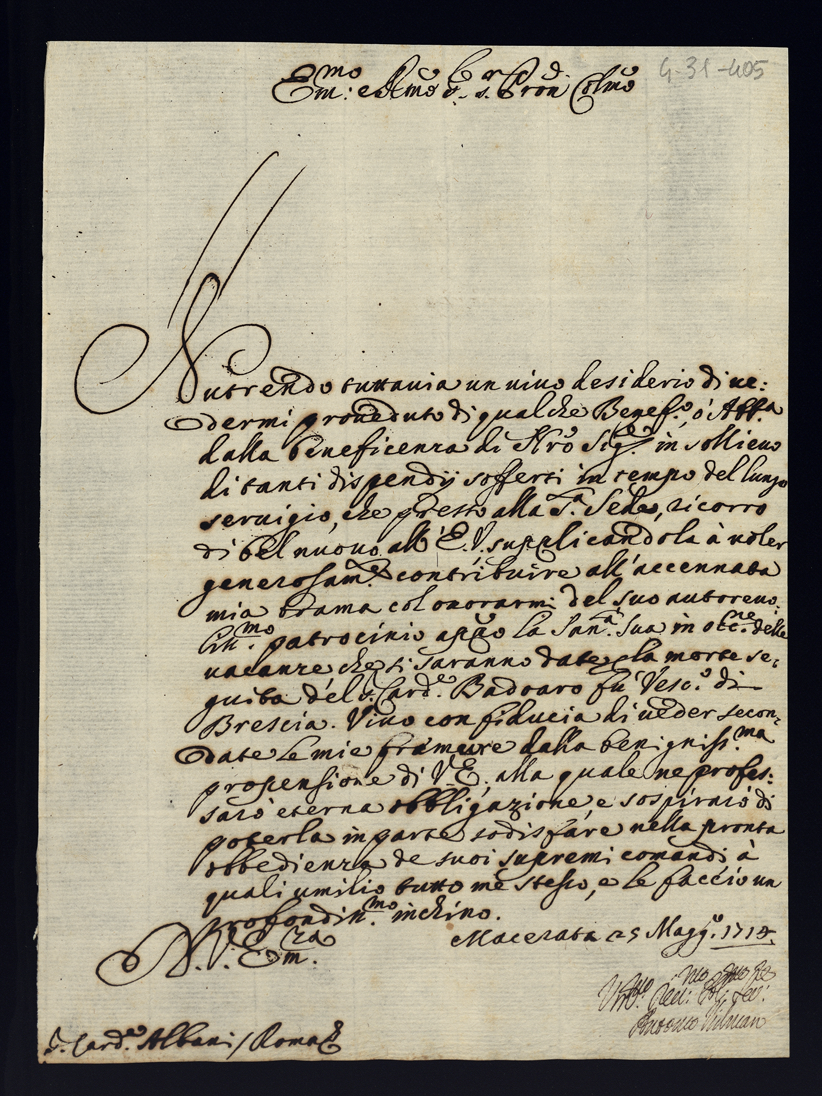 Em.mo e R.mo S.r S.r Pron Col.mo
4-31-405
Nutrendo tuttavia un vivo desiderio di ve:
dermi proveduto di qualche Benef.o, ò Abb.a
dalla beneficenza di Nro Sig.re in sollievo
di tanti dispendij sofferti in tempo del lungo
servigio, che presto alla S.ta Sede, ricorro
di bel nuovo all' E. V. supplicandola à voler
generosam.te contribuire all' accennata
mia brama col onorarmi del suo autorevo:
liss.mo patrocinio apṗo la San.tà Sua in occ.ne delle
vacanze che si saranno date p la morte se:
guita del S. Card.e Badoaro fù Vesc.o di
Brescia. Vivo con fiducia di veder secon:
date le mie premure dalla benigniss.ma
propensione di V. E., alla quale ne profes:
sarò eterna obbligazione, e sospirarò di
poterla in parte sodisfare nella pronta
obbedienza de suoi supremi comandi à
quali umilio tutto mè stesso, e le faccio un
profondiss.mo inchino.
Macerata 25 Magg.o 1714.
D. V. Em.za
Um.mo Dev:
Antonio
S. Card.e Albani / Roma